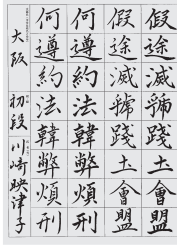 假途滅虢踐土會盟
假途滅虢踐土會盟
何遵約法韓弊煩刑
何遵約法韓弊煩刑
大阪 初段 川崎映津子